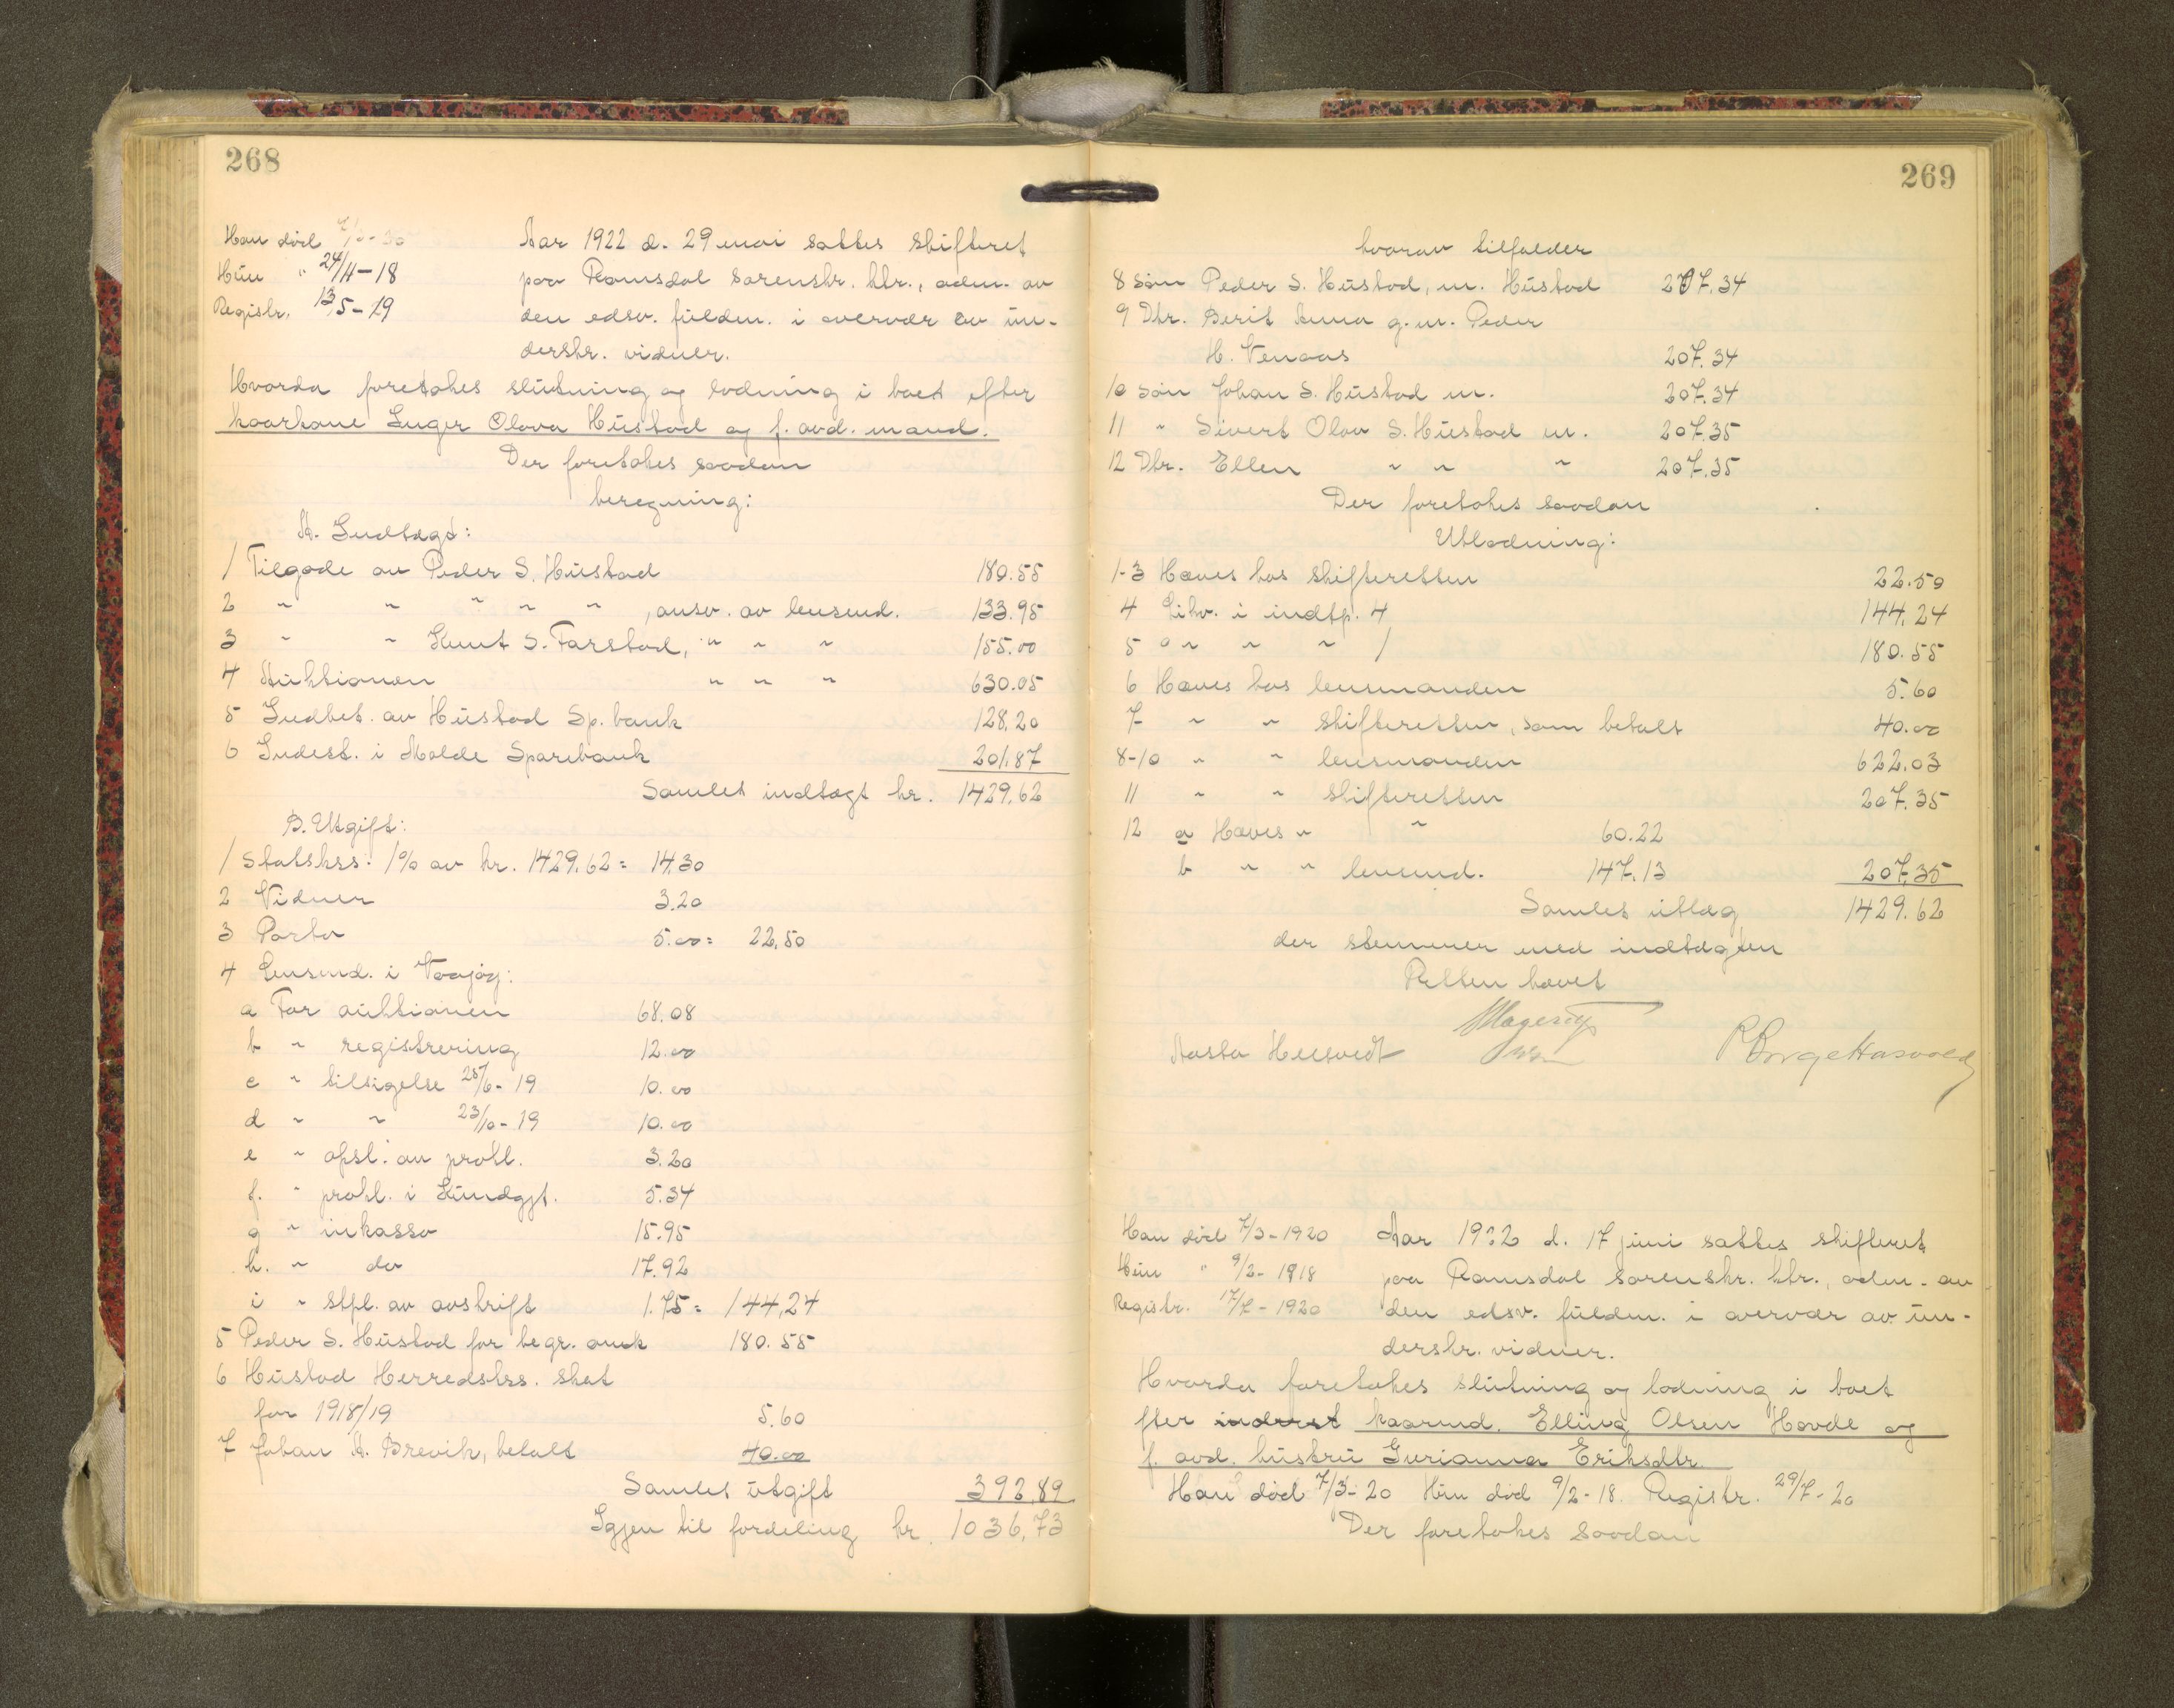 268
Han död
Hun " 24/11-18
Registr. 13/5-19
Aar 1922 d. 29 mai sattes skifteret
paa Romsdal sorenskr. ktr., adm. av
den edsv. fuldm. i overvær av un-
derskr. vidner.
Hvorda foretokes slutning og lodning i boet efter
kaarkone Inger Olava Hustad og f. avd. mand.
Der foretokes saadan
beregning:
A. Indtægt:
1 Tilgode av Peder S. Hustad 180.55
2 " " " " " , ansv. av lensmd. 133.95
3 " " Knut S. Farstad, " " " 155.00
4 Auktionen " " " 630.05
5 Indbet. av Hustad Sp.bank 128.20
6 Indest. i Molde Sparebank 201.87
Samlet indtægt kr. 1429.62
B. Utgift:
1 Statskss. 1% av kr. 1429.62 = 14.30
2 Vidner 3.20
3 Porto 5.00 = 22.50
4 Lensmd. i Vaagøy:
a For auktionen 68.08
b " registrering 12.00
c " tilsigelse 25/6-19 10.00
d " " 23/10-19 10.00
e " opsl. av prokl. 3.20
f. " prokl. i Kundgjt. 5.34
g " inkasso 15.95
h. " do 17.92
i " stpl. av avskrift 1.75 = 144.24
5 Peder S. Hustad for begr. omk 180.55
6 Hustad Herredskss. skat
for 1918/19 5.60
7 Johan A. Brevik, betalt 40.00
Samlet utgift 392.89
Igjen til fordeling kr. 1036.73
269
hvorav tilfalder
8 Søn Peder S. Hustad, m. Hustad 207.34
9 Dtr. Berit Anna g.m. Peder
H. Venaas 207.34
10 Søn Johan S. Hustad m. 207.34
11 " Sivert Olav S. Hustad m. 207.35
12 Dtr. Ellen " " " 207.35
Der foretokes saadan
Utlodning:
1-3 Haves hos skifteretten 22.50
4 Likv. i indtp. 4 144.24
5 " " " 1 180.55
6 Haves hos lensmanden 5.60
7 " " skifteretten, som betalt 40.00
8-10 " " lensmanden 622.03
11 " " skifteretten 207.35
12 a Haves " " 60.22
b " " lensmd. 147.13 207.35
Samlet utlæg 1429.62
der stemmer med indtægten
Retten hævet
Hagerup
Aasta
Han död 7/3-1920
Hun " 9/2-1918
Registr. 17/7-1920
Aar 1922 d. 17 juni sattes skifteret
paa Romsdal sorenskr. ktr., adm. av
den edsv. fuldm. i overvær av un-
derskr. vidner.
Hvorda foretokes slutning og lodning i boet
fter inderst kaarmd. Elling Olsen Hovde og
f. avd. hustru Gurianna Eriksdtr.
Han död 7/3-20 Hun död 9/2-18. Registr. 29/7-20
Der foretokes saadan